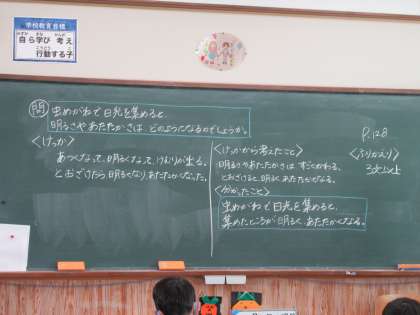 学校教育目標
自ら学び 考え
行動する子
問 虫めがねで日光を集めると、
明るさやあたたかさは、どのようになるのでしょうか。
<けっか>
あつくなって、明るくなって、けむりが出る。
とおざけたら、明るくなり、あたたかくなった。
<けっかから考えたこと>
明るさやあたたかさは、すごくかわる。
とおざけると、明るく、あたたかくなる。
<分かったこと>
虫めがねで日光を集めると、
集めたところが明るく、あたたかくなる。
P.128
<ふりかえり>
3文以上